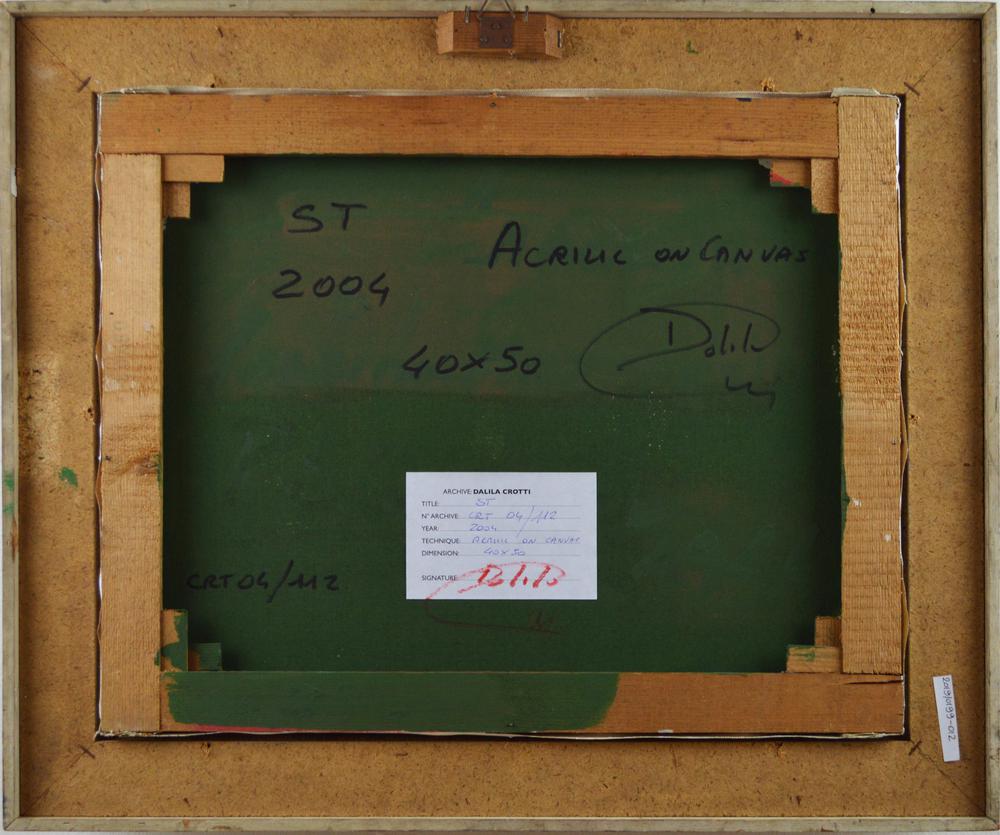 ST
ACRILIC ON CANVAS
2004
40x50
Dalila
ARCHIVE: DALILA CROTTI
TITLE: ST
N° ARCHIVE: CRT 04/112
YEAR: 2004
TECHNIQUE: ACRILIC ON CANVAS
DIMENSION: 40x50
SIGNATURE: Dalila
CRT04/112
2019/0199-012